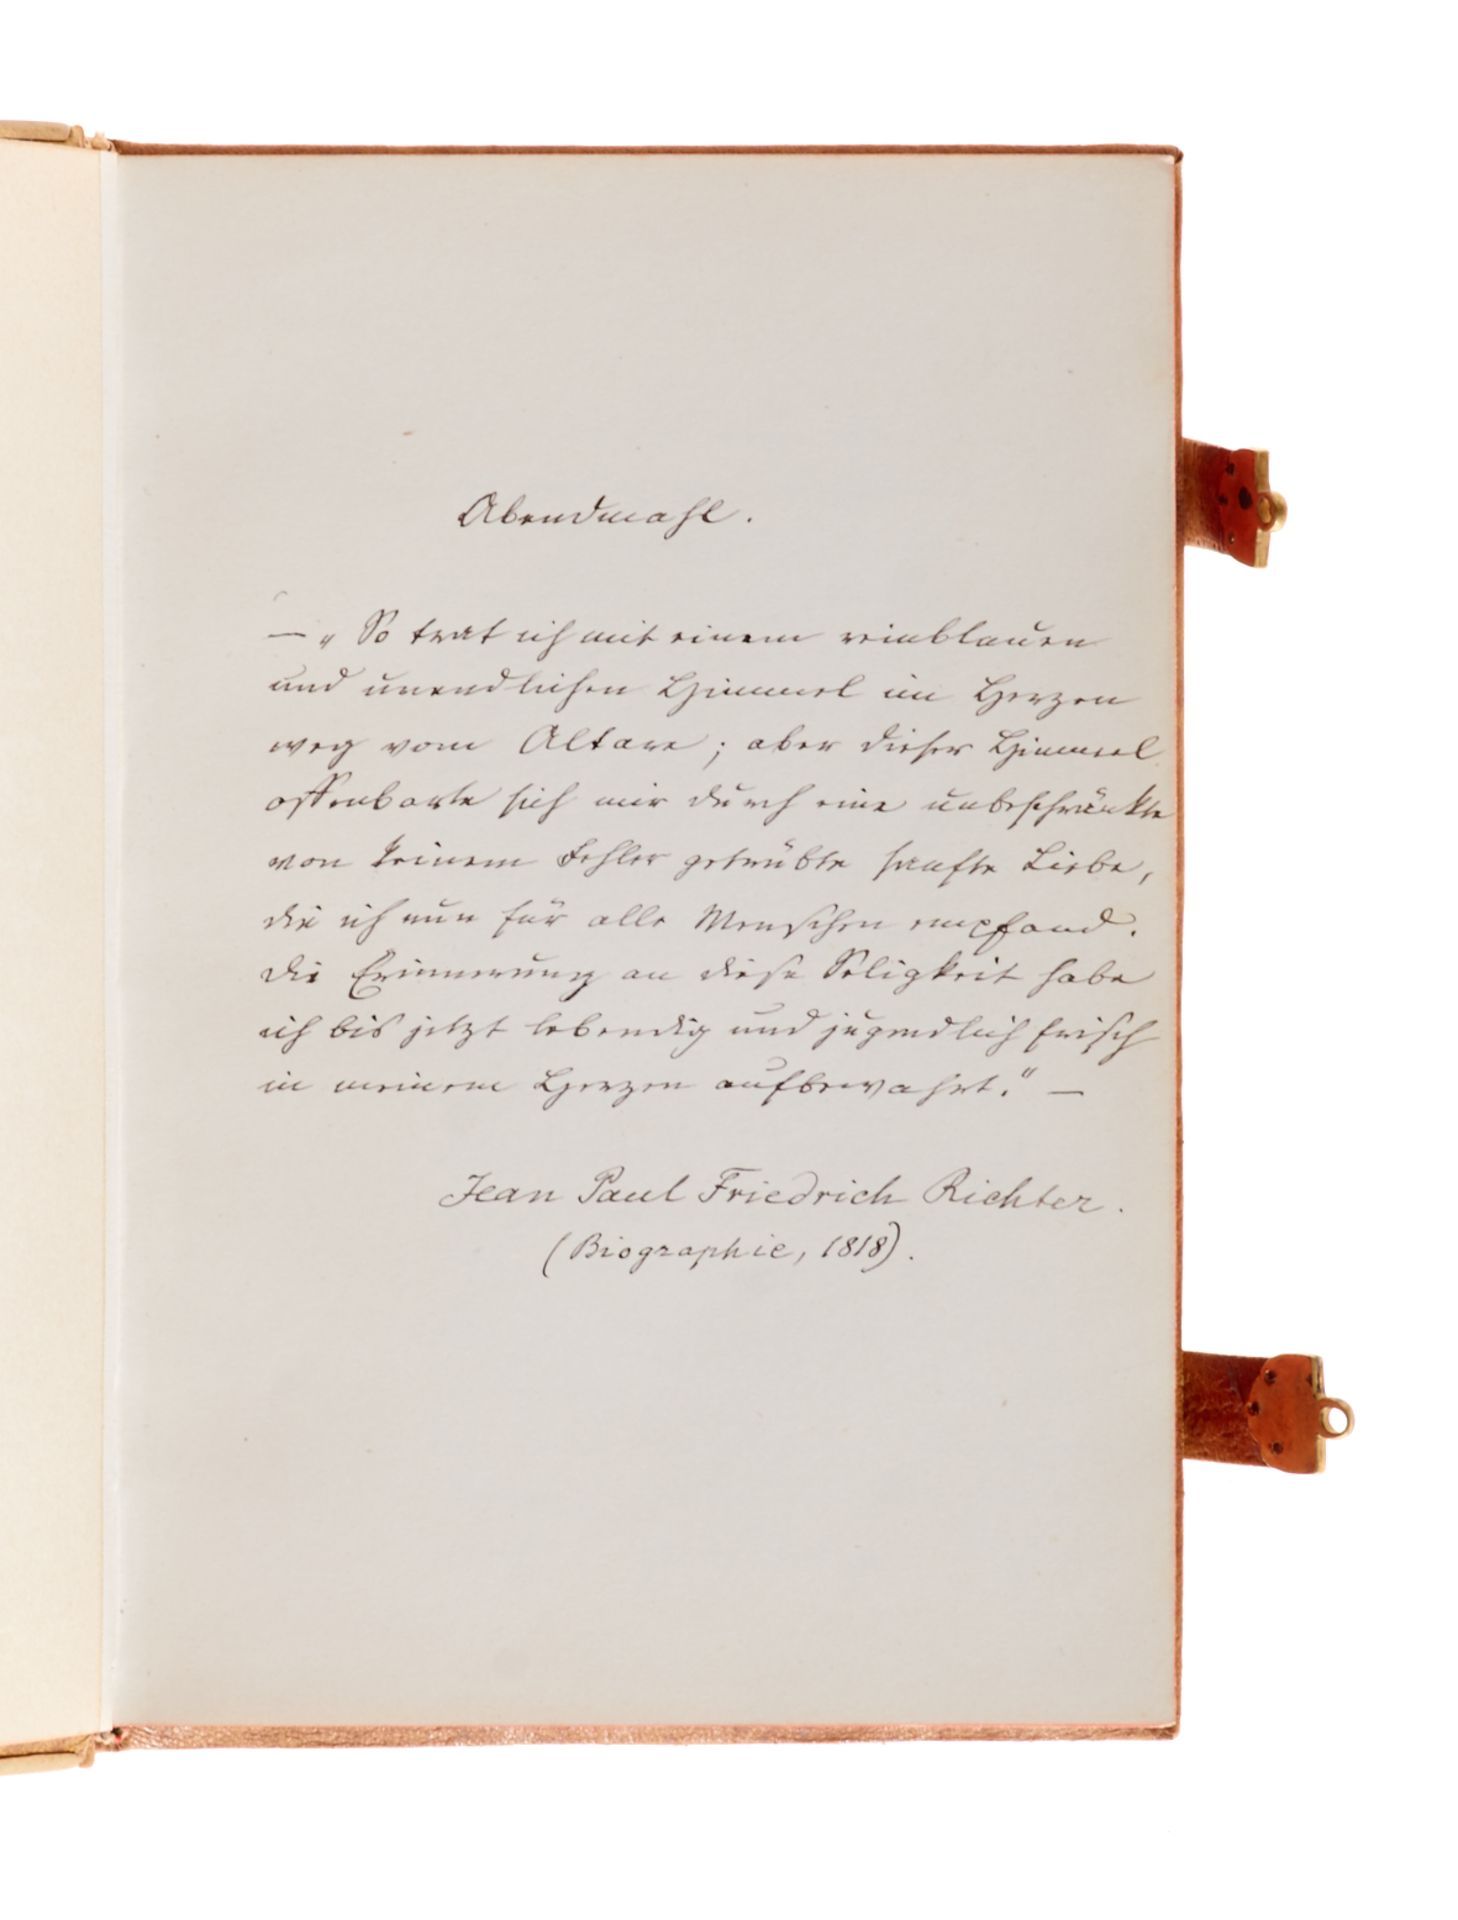 Abendmahl.
— „So trat ich mit einem reinblauen
und unendlichen Himmel im Herzen
weg vom Altare; aber dieser Himmel
offenbarte sich mir durch eine unbeschränkte
von keinem Fehler getrübte sanfte Liebe,
die ich nun für alle Menschen empfand.
Die Erinnerung an diese Seligkeit habe
ich bis jetzt lebendig und jugendlich frisch
in meinem Herzen aufbewahrt.“ —
Jean Paul Friedrich Richter.
(Biographie, 1818).